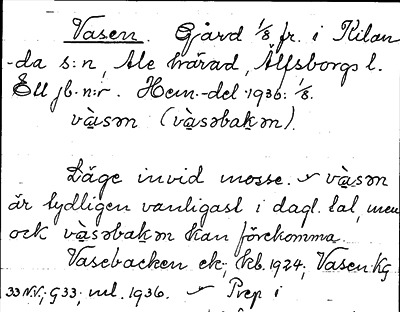 Vasen. Gård 1/8 fr. i Kilan-
-da s:n, Ale härad, Älfsborgs l.
Ett jb.n:r. Hem.-del 1936: 1/8.
và̱sən (và̱səbaḵən).
Läge invid mosse. – và̱sən
är tydligen vanligast i dagl. tal, men
ock và̱səbaḵən kan förekomma.
Vasebacken ek; kb. 1924; Vasen KG
33 N.V.; G33; ml. 1936. – Prep i